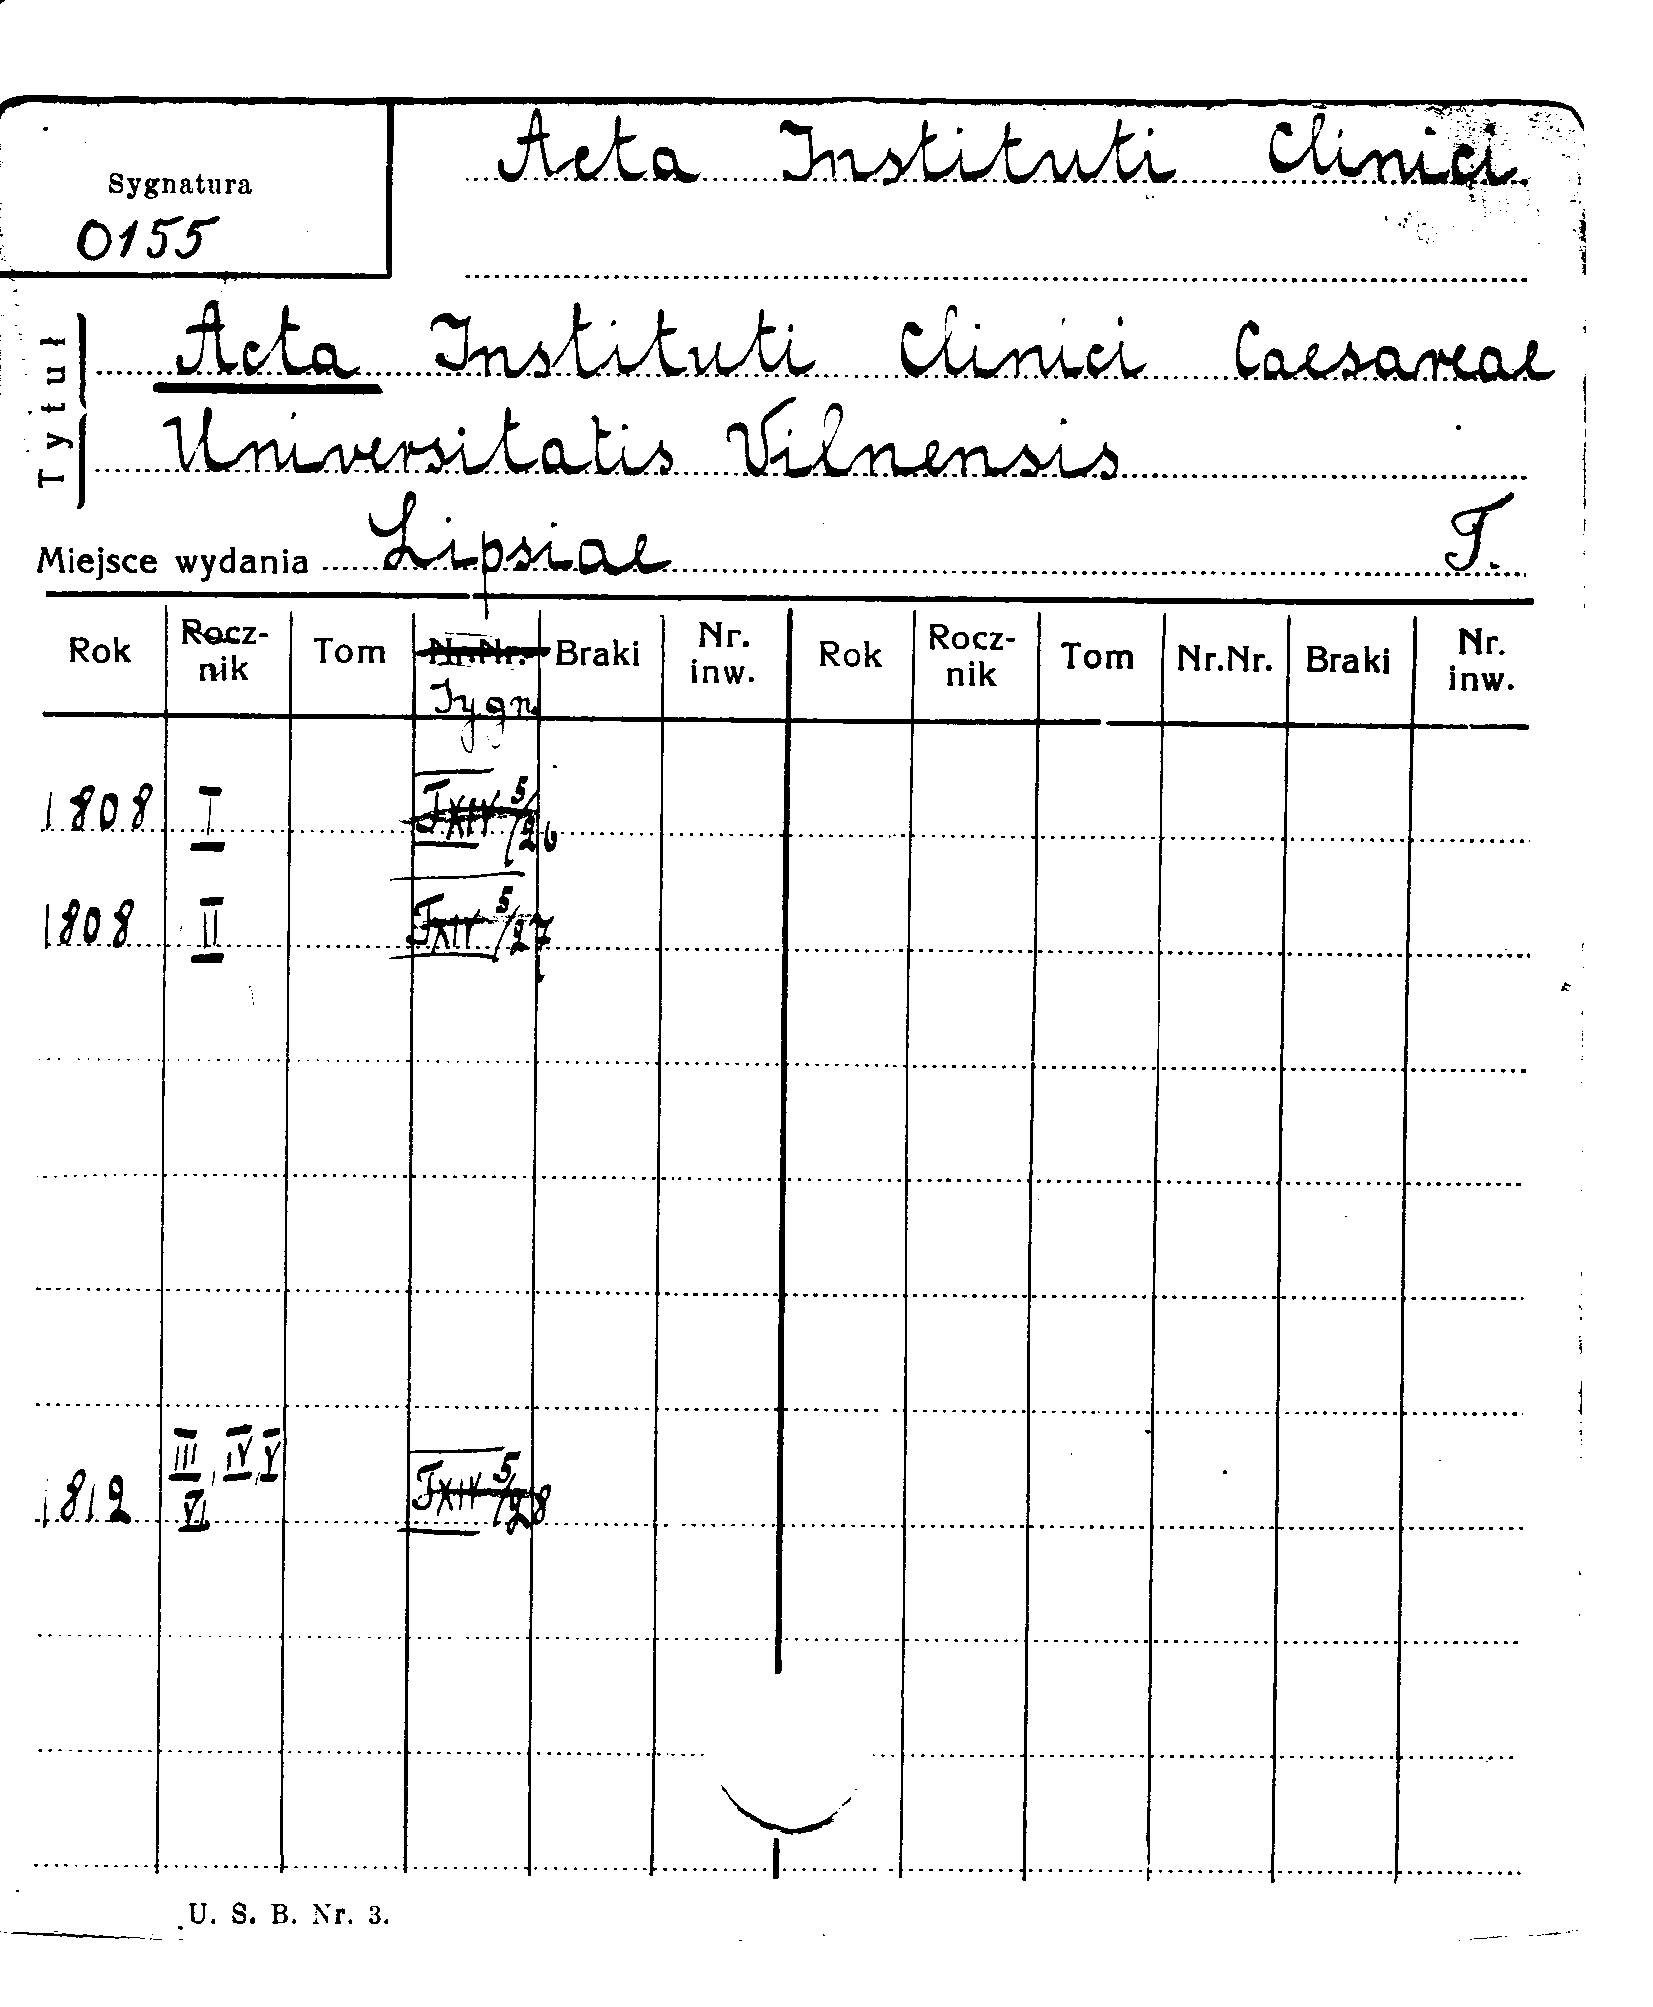 Acta Instituti Clinici
Sygnatura
0155
Tytuł
Acta Instituti Clinici Caesareae
Universitatis Vilnensis
Miejsce wydania Lipsiae T.
Rok Rocz-nik Tom Nr.Nr. Sygn. Braki Nr. inw. Rok Rocz-nik Tom Nr.Nr. Braki Nr. inw.
1808 I TXIV 5/26
1808 II TXIV 5/27
1812 III, IV, V VI TXIV 5/28
U. S. B. Nr. 3.